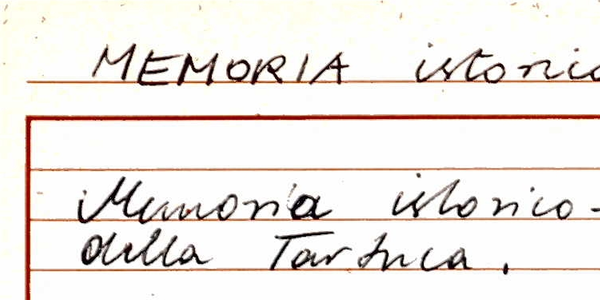 MEMORIA istorico
Memoria istorico-
della Tartuca.